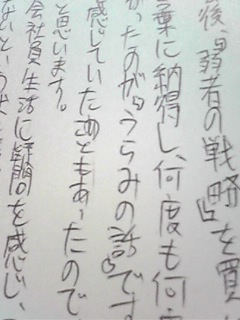 後、『弱者の戦略』を買
葉に納得し、何度も何
かったのが『うらみの話』です
感じていためもあったので
と思います。
会社員生活に疑問を感じ、